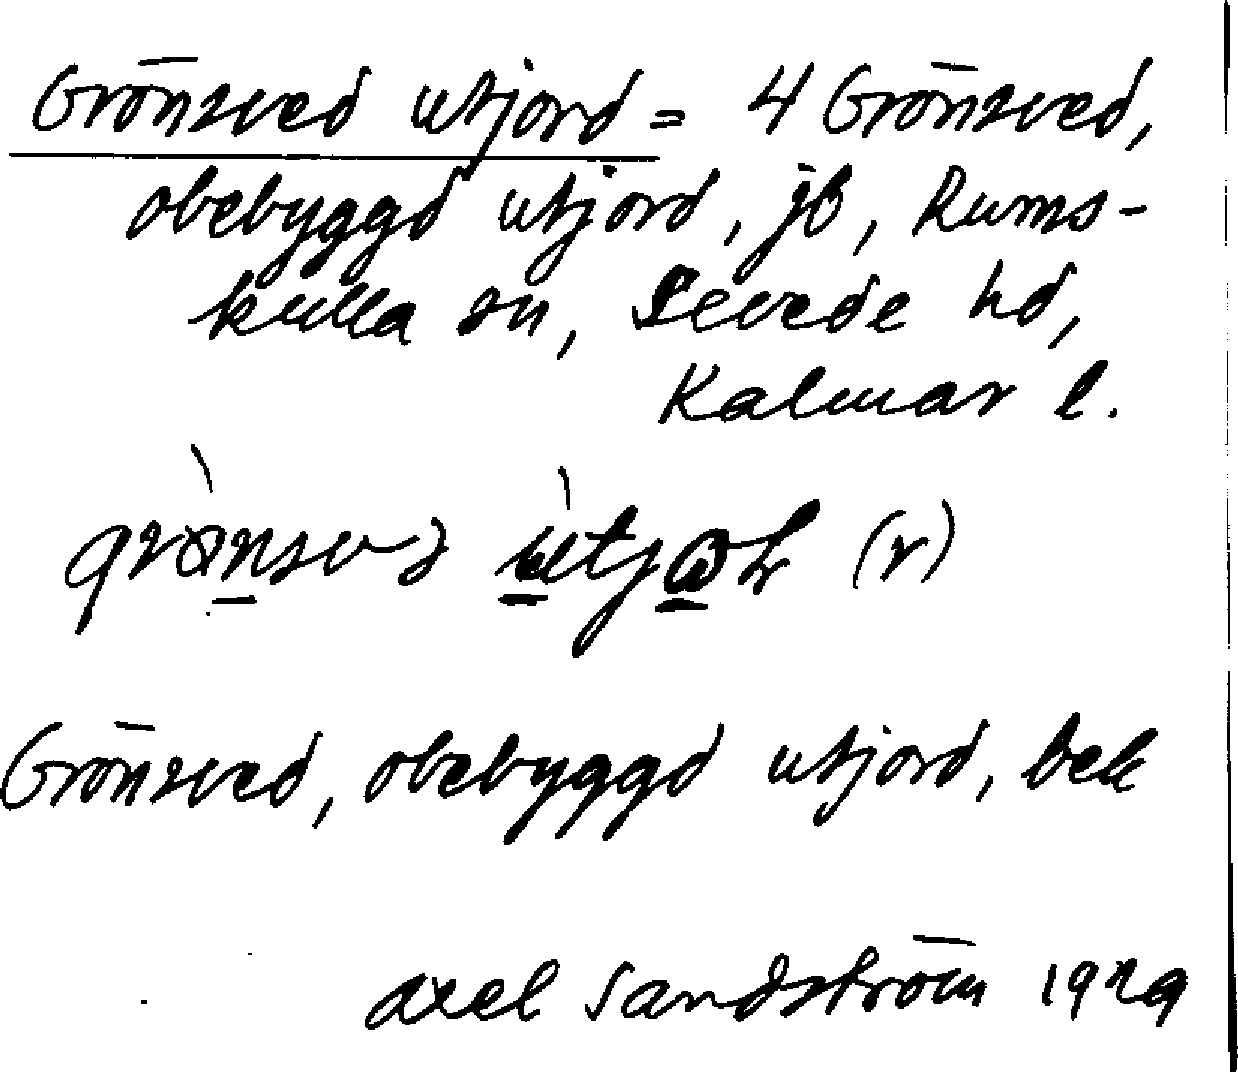 Grönsved utjord = 4 Grönsved,
obebyggd utjord, jb, Rums-
kulla sn, Sevede hd,
Kalmar l.
(r)
Grönsved, obebyggd utjord, bek
Axel Sandström 1929